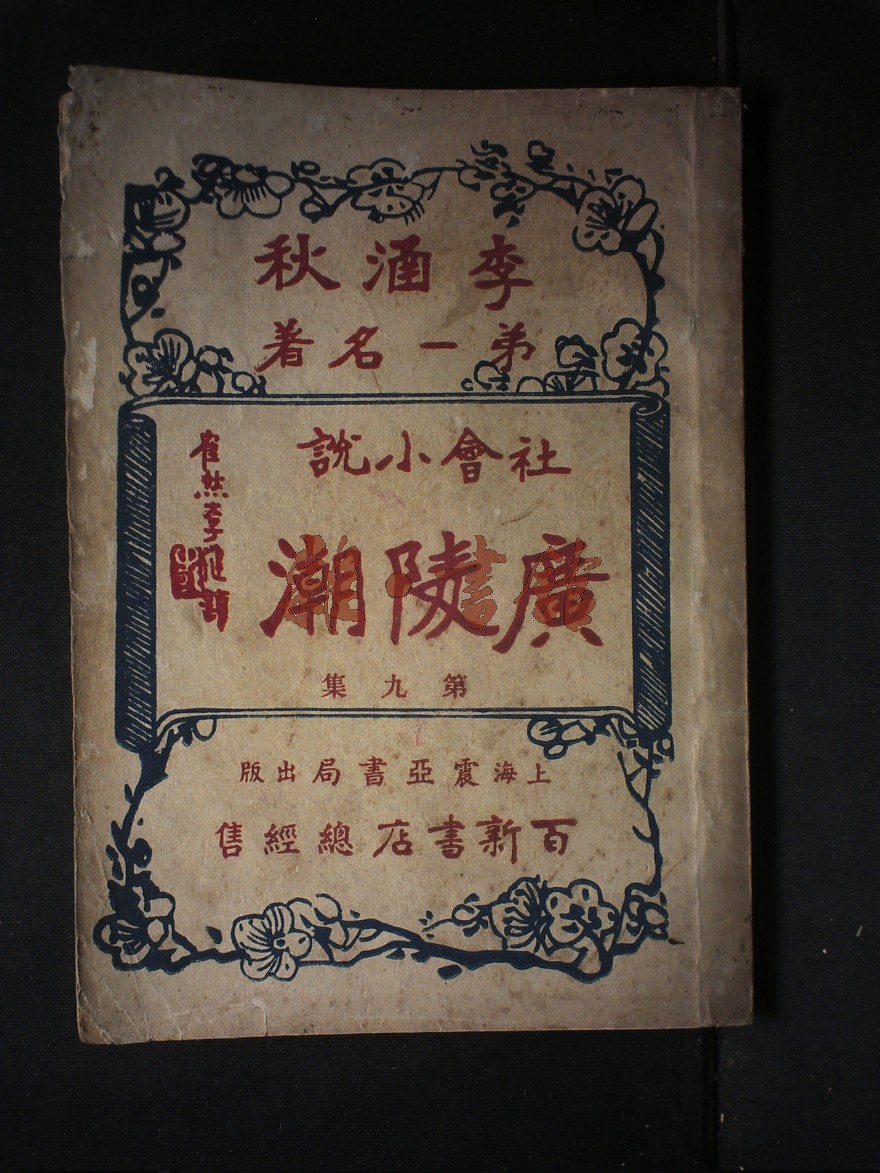 李涵秋
弟一名著
社會小說
廣陵潮
第九集
上海震亞書局出版
百新書店總經售